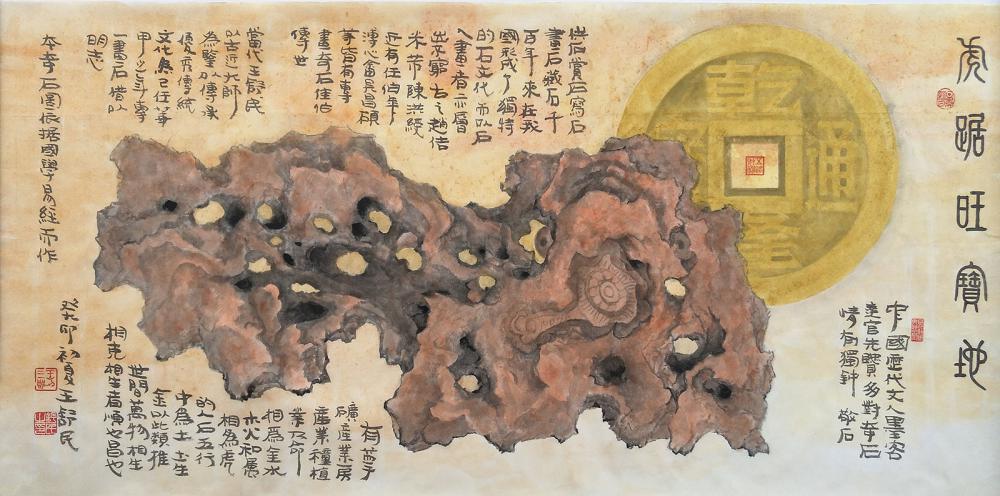 虎踞旺寶地
中國歷代文人墨客
達官先賢多對奇石
情有獨鐘 石
石賞石寫石
畫石藏石千
百年來在我
國形成了獨特
的石文化 而以石
入畫者亦層
出不窮 古之趙佶
米芾陳洪綬
近有任伯年
溥心畬吳昌碩
等皆有專
畫奇石佳作
傳世
當代王舒民
以古近大師
為鑒以傳承
優秀傳統
文化為己任
甲之年專
一畫石借以
明志
本奇石圖依据國學易經而作
有基于
礦產業房
產業種植
業乃命
相為金水
木火和屬
相為虎
的人 五行
中為土土生
金以此類推
世間萬物相生
相克相生者順也昌也
癸卯初夏王舒民
乾隆通寶